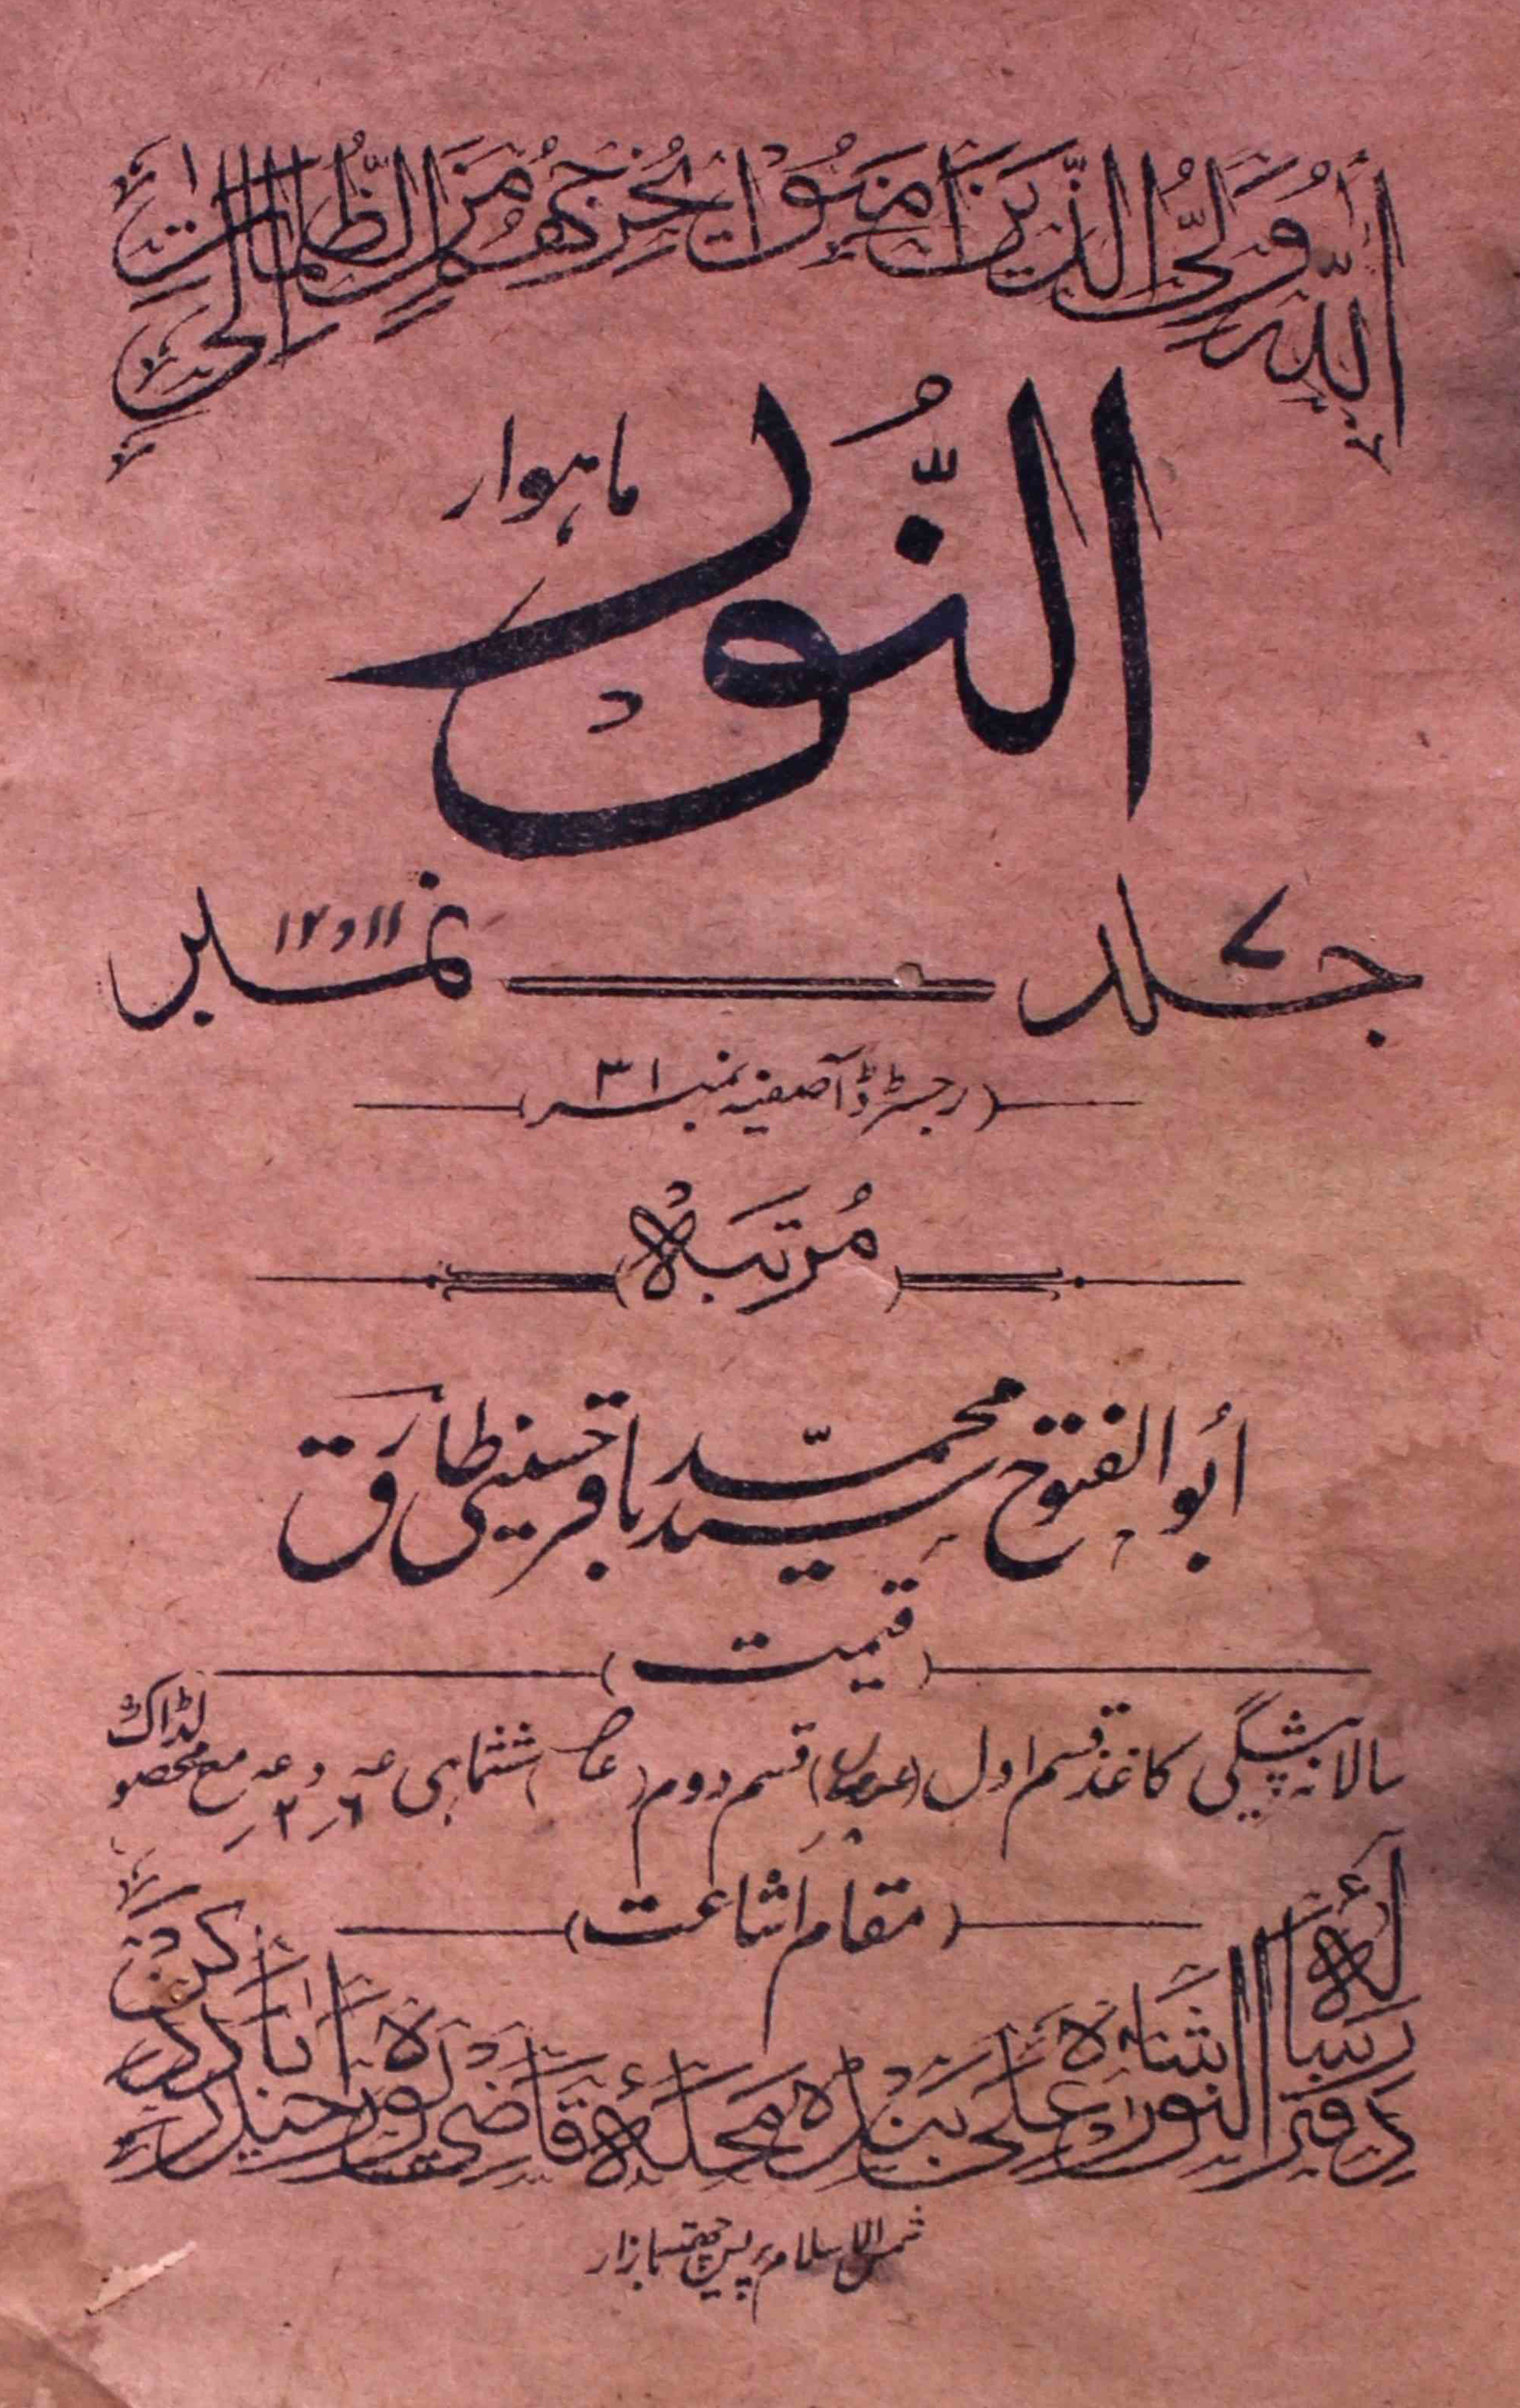 اَللّٰهُ وَلِیُّ الَّذِیْنَ اٰمَنُوْا یُخْرِجُهُمْ مِنَ الظُّلُمَاتِ اِلَی
النُّور
ماہوار
جلد ۷ نمبر ۱۱ و ۱۲
(رجسٹرڈ آصفیہ نمبر ۳۱)
(مُرتبہ)
أبو الفتوح سید محمّد باقر حسینی طارق
(قیمت)
سالانہ پیشگی کاغذ قسم اول قسم دوم ششماہی مع محصولڈاک
(مقام اشاعت)
دفتر النور علی بنڈہ محلہ قاضی پورہ حیدرآباد دکن
شمس الاسلام پریس چھتہ بازار